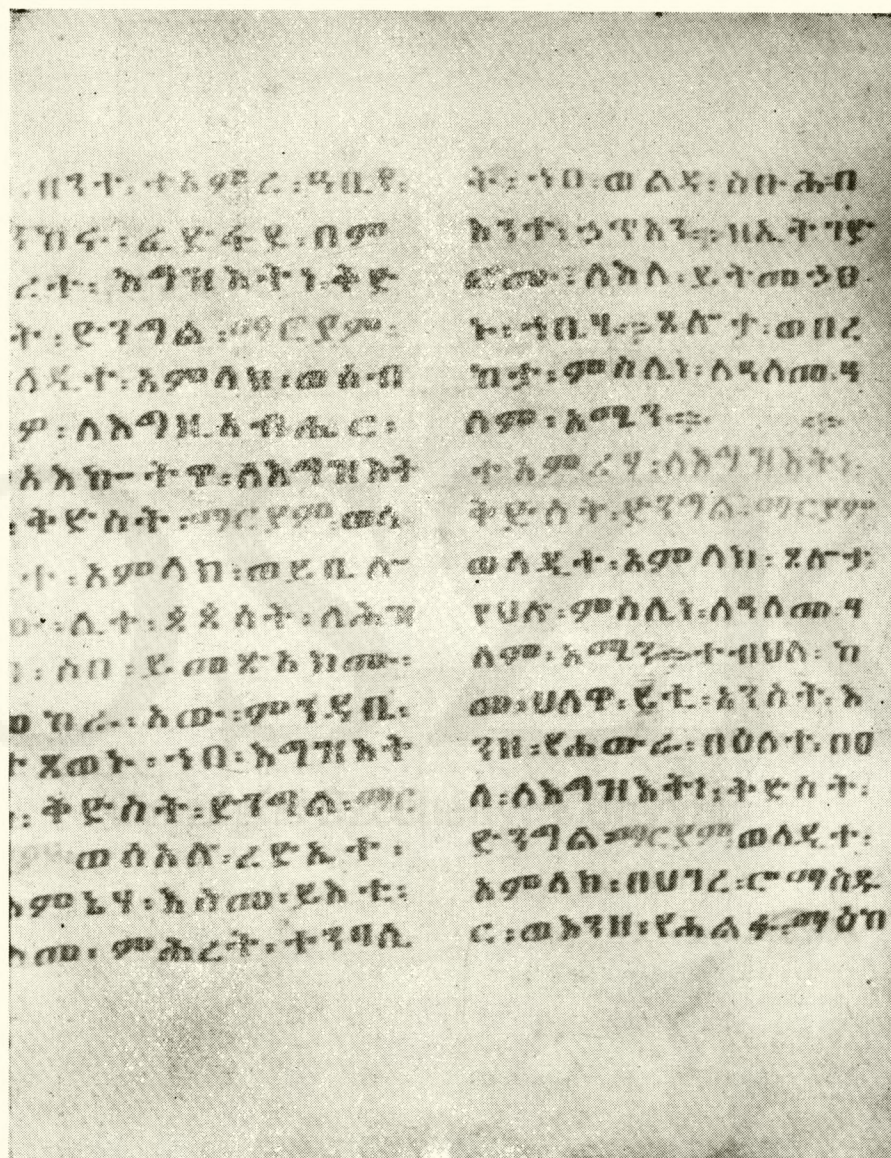 በንተ፡ ተአምረ፡ ዓቢየ፡
ንከፋ፡ ፈድፋደ፡ በም
ረት፡ እግዝእትነ፡ ቅድ
ት፡ ድንግል፡ ማርያም፡
ላዲተ፡ አምላክ፡ ወሰብ
ዎ፡ ለእግዚአብሔር፡
አአኰትዋ፡ ለእግዝእት
፡ ቅድስት፡ ማርያም፡ ወላ
ተ፡ አምላክ፡ ወይቢሎ
፡ ሊተ፡ ጳጳሳት፡ ለሕዝ
፡ ሶበ፡ ይመጽአክሙ፡
ከራ፡ አው፡ ምንዳቤ፡
ጸወኑ፡ ኀበ፡ እግዝእት
፡ ቅድስት፡ ድንግል፡ ማር
ያም፡ ወሰአሉ፡ ረድኤተ፡
እምኔሃ፡ እስመ፡ ይእቲ፡
እመ፡ ምሕረት፡ ተንባሊ
ት፡ ኀበ፡ ወልዳ፡ ስቡሕ፡ በ
እንተ፡ ኃጥአን። ዘኢትገድ
ፎሙ፡ ለእለ፡ ይትመኃፀ
ኑ፡ ኀቤሃ። ጸሎታ፡ ወበረ
ከታ፡ ምስሌነ፡ ለዓለመ፡ ዓ
ለም፡ አሜን። ።
ተአምረሃ፡ ለእግዝእትነ፡
ቅድስት፡ ድንግል፡ ማርያም
ወላዲተ፡ አምላክ፡ ጸሎታ
የሀሉ፡ ምስሌነ፡ ለዓለመ፡ ዓ
ለም፡ አሜን። ተብህለ፡ ከ
መ፡ ሀለዋ፡ ፪ቲ፡ አንስት፡ እ
ንዘ፡ የሐውራ፡ በዕለተ፡ በዐ
ለ፡ ለእግዝእትነ፡ ቅድስት፡
ድንግል፡ ማርያም፡ ወላዲተ፡
አምላክ፡ በሀገረ፡ ሮማስዱ
ር፡ ወእንዘ፡ የሐልፋ፡ ማዕከ